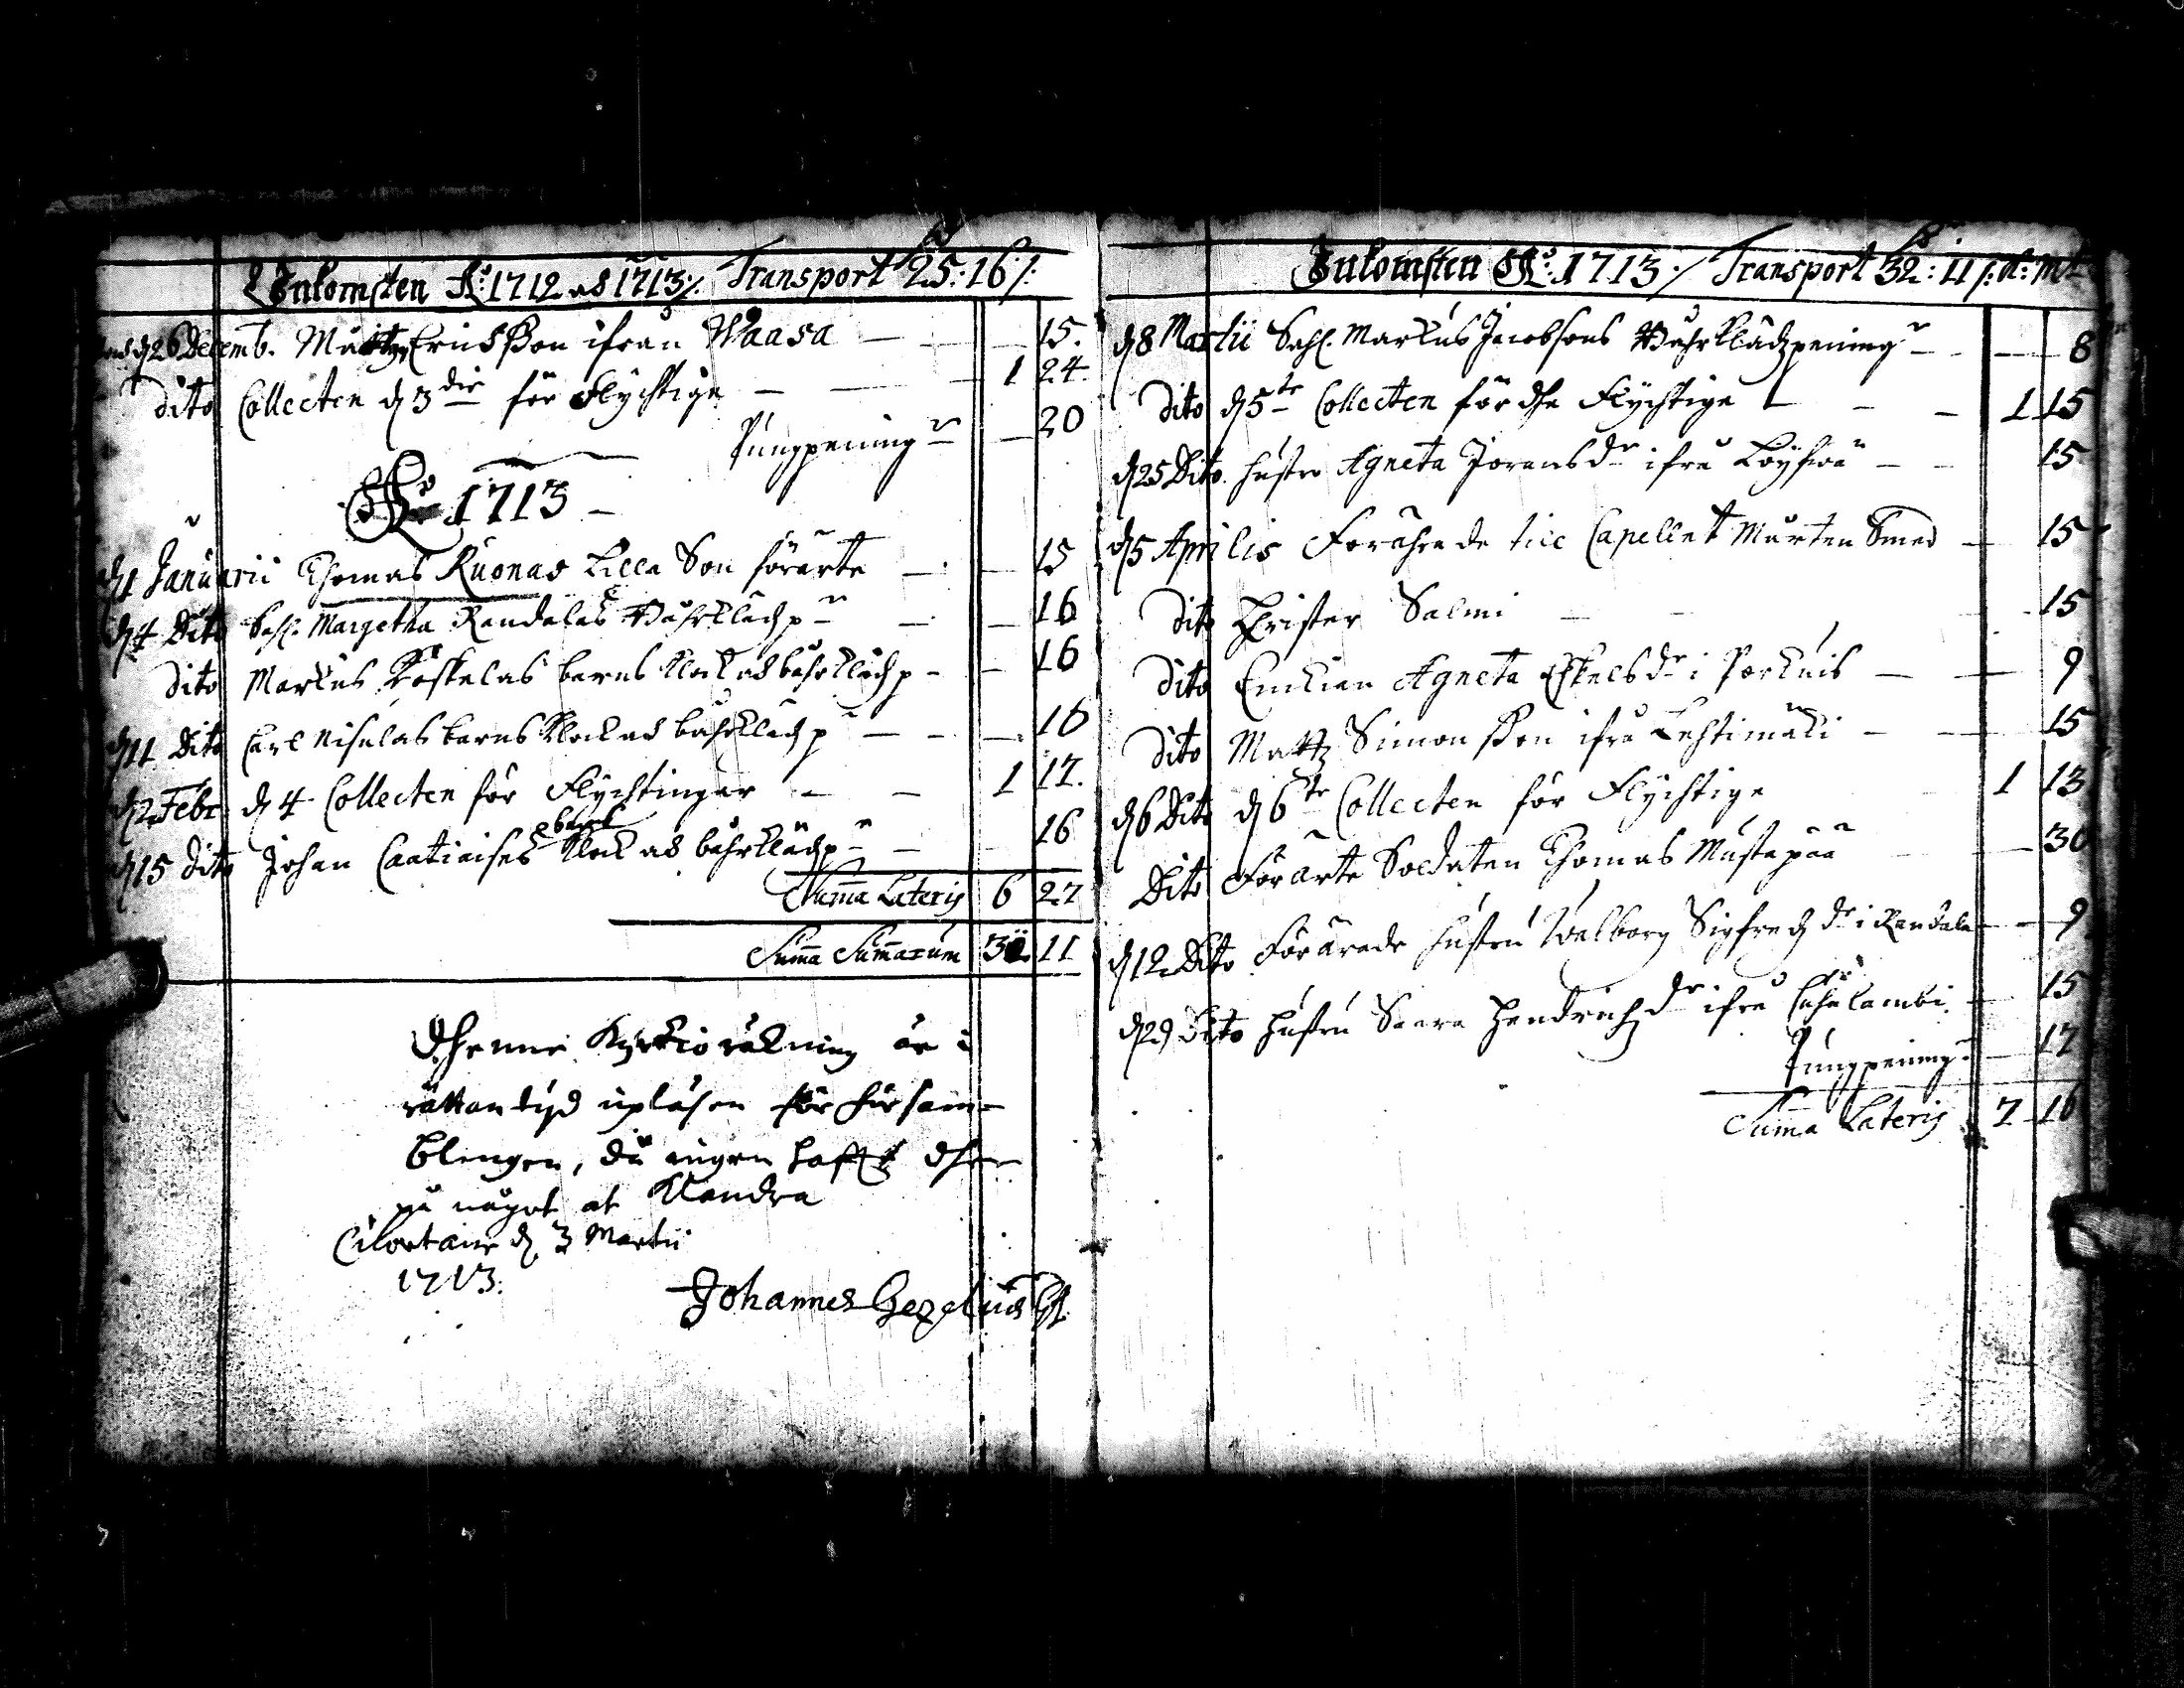 Inkomsten Åo: 1712 o 1713 ⁒ Transport 25: 16 ⁒
d 26 Decemb. Mattz Erichsson ifrån Waasa — 15.
Dito Collecten d 3die för Flychtige — 1 24.
Pungpening — 20
Åo 1713 —
d 1 Januarii Thomas Ruonas Lilla Son förärte — 15
d 4 Dito Sahl. Margetha Randalas Båhrklädh p — 16
Dito Markus Koskelas barns klock och båhrklädh p — 16
d 11 Dito Carl Nisulas barns klock och båhrklädh p — 16
d 2 Febr d 4 Collecten för Flychtingar — 1 17.
d 15 Dito Johan barns klock och båhrklädh p — 16
Summa Lateris 6 27
Summa Summarum 32 11
Dhenne Kyrkioräkning är i
rättan tijd upläsen för försam-
blingen, då ingen hafft dher
på något at klandra
d 3 Martii
1713:
Johannes Gezelius
Inkomsten Åo: 1713 ⁒ Transport 32: 11 ⁒ d: mt
d 8 Martii Sahl. Markus Jacobsons Båhrklädhpening — 8
Dito d 5te Collecten för dhe Flychtige — 1 15
d 25 Dito hustro Agneta Joransdr ifrå — 15
d 5 Aprilis Förährade till Capellet Mårten Smed — 15
Dito Christer Salmi — 15
Dito Enkian Agneta Eskelsdr i — 9
Dito Mattz Simonsson ifrå Lehtimäki — 15
d 6 Dito d 6te Collecten för Flychtige 1 13
Dito Förärte Soldaten Thomas Mustapää — 30
d 12 Dito Förärade hustru Walborg Sigfredzdr i Randala — 9
d 29 Dito hustru Saara Hendrichzdr ifrå — 15
Pungpening — 17
Summa Lateris 7 16